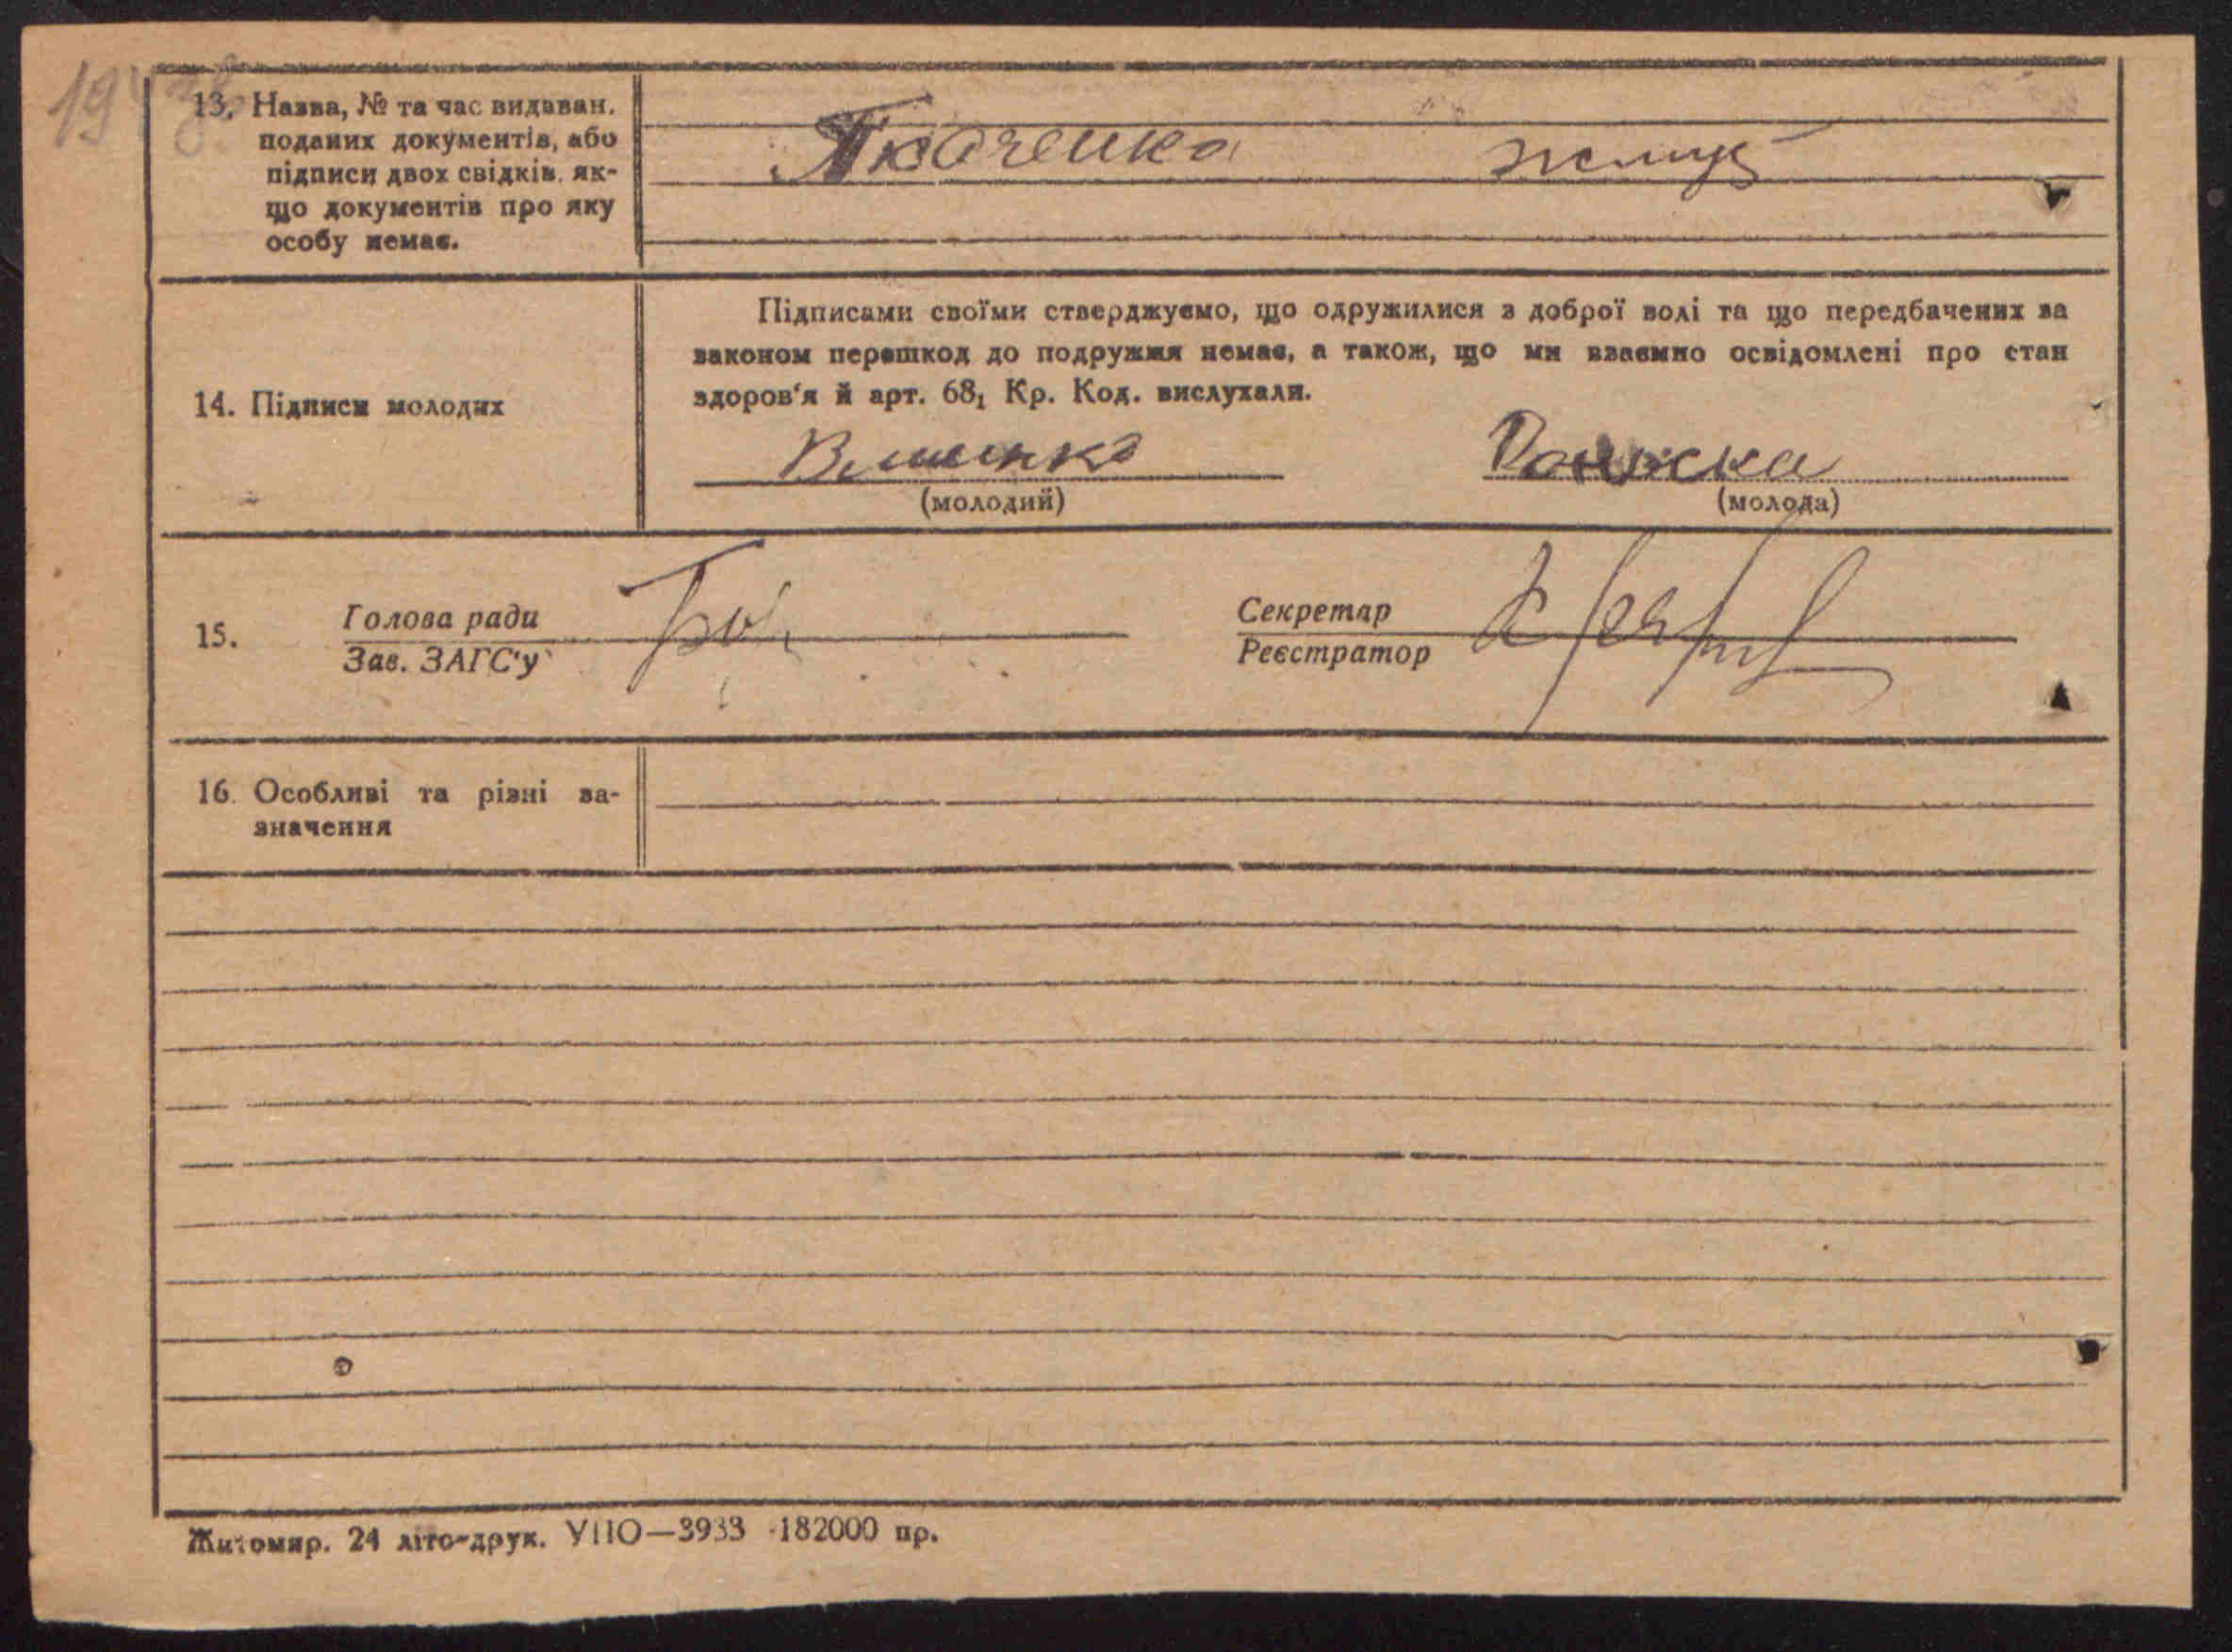 13. Назва, № та час видаван.
поданих документів, або
підписи двох свідків, як-
що документів про яку
особу немає.
Ткаченко
Підписами своїми стверджуємо, що одружилися з доброї волі та що передбачених за
законом перешкод до подружжя немає, а також, що ми взаємно освідомлені про стан
здоров'я й арт. 68₁ Кр. Код. вислухали.
14. Підписи молодих
(молодий) (молода)
15. Голова ради
Зав. ЗАГС'у
Секретар
Реєстратор
16. Особливі та різні за-
значення
Житомир. 24 літо-друк. УПО—3933 182000 пр.